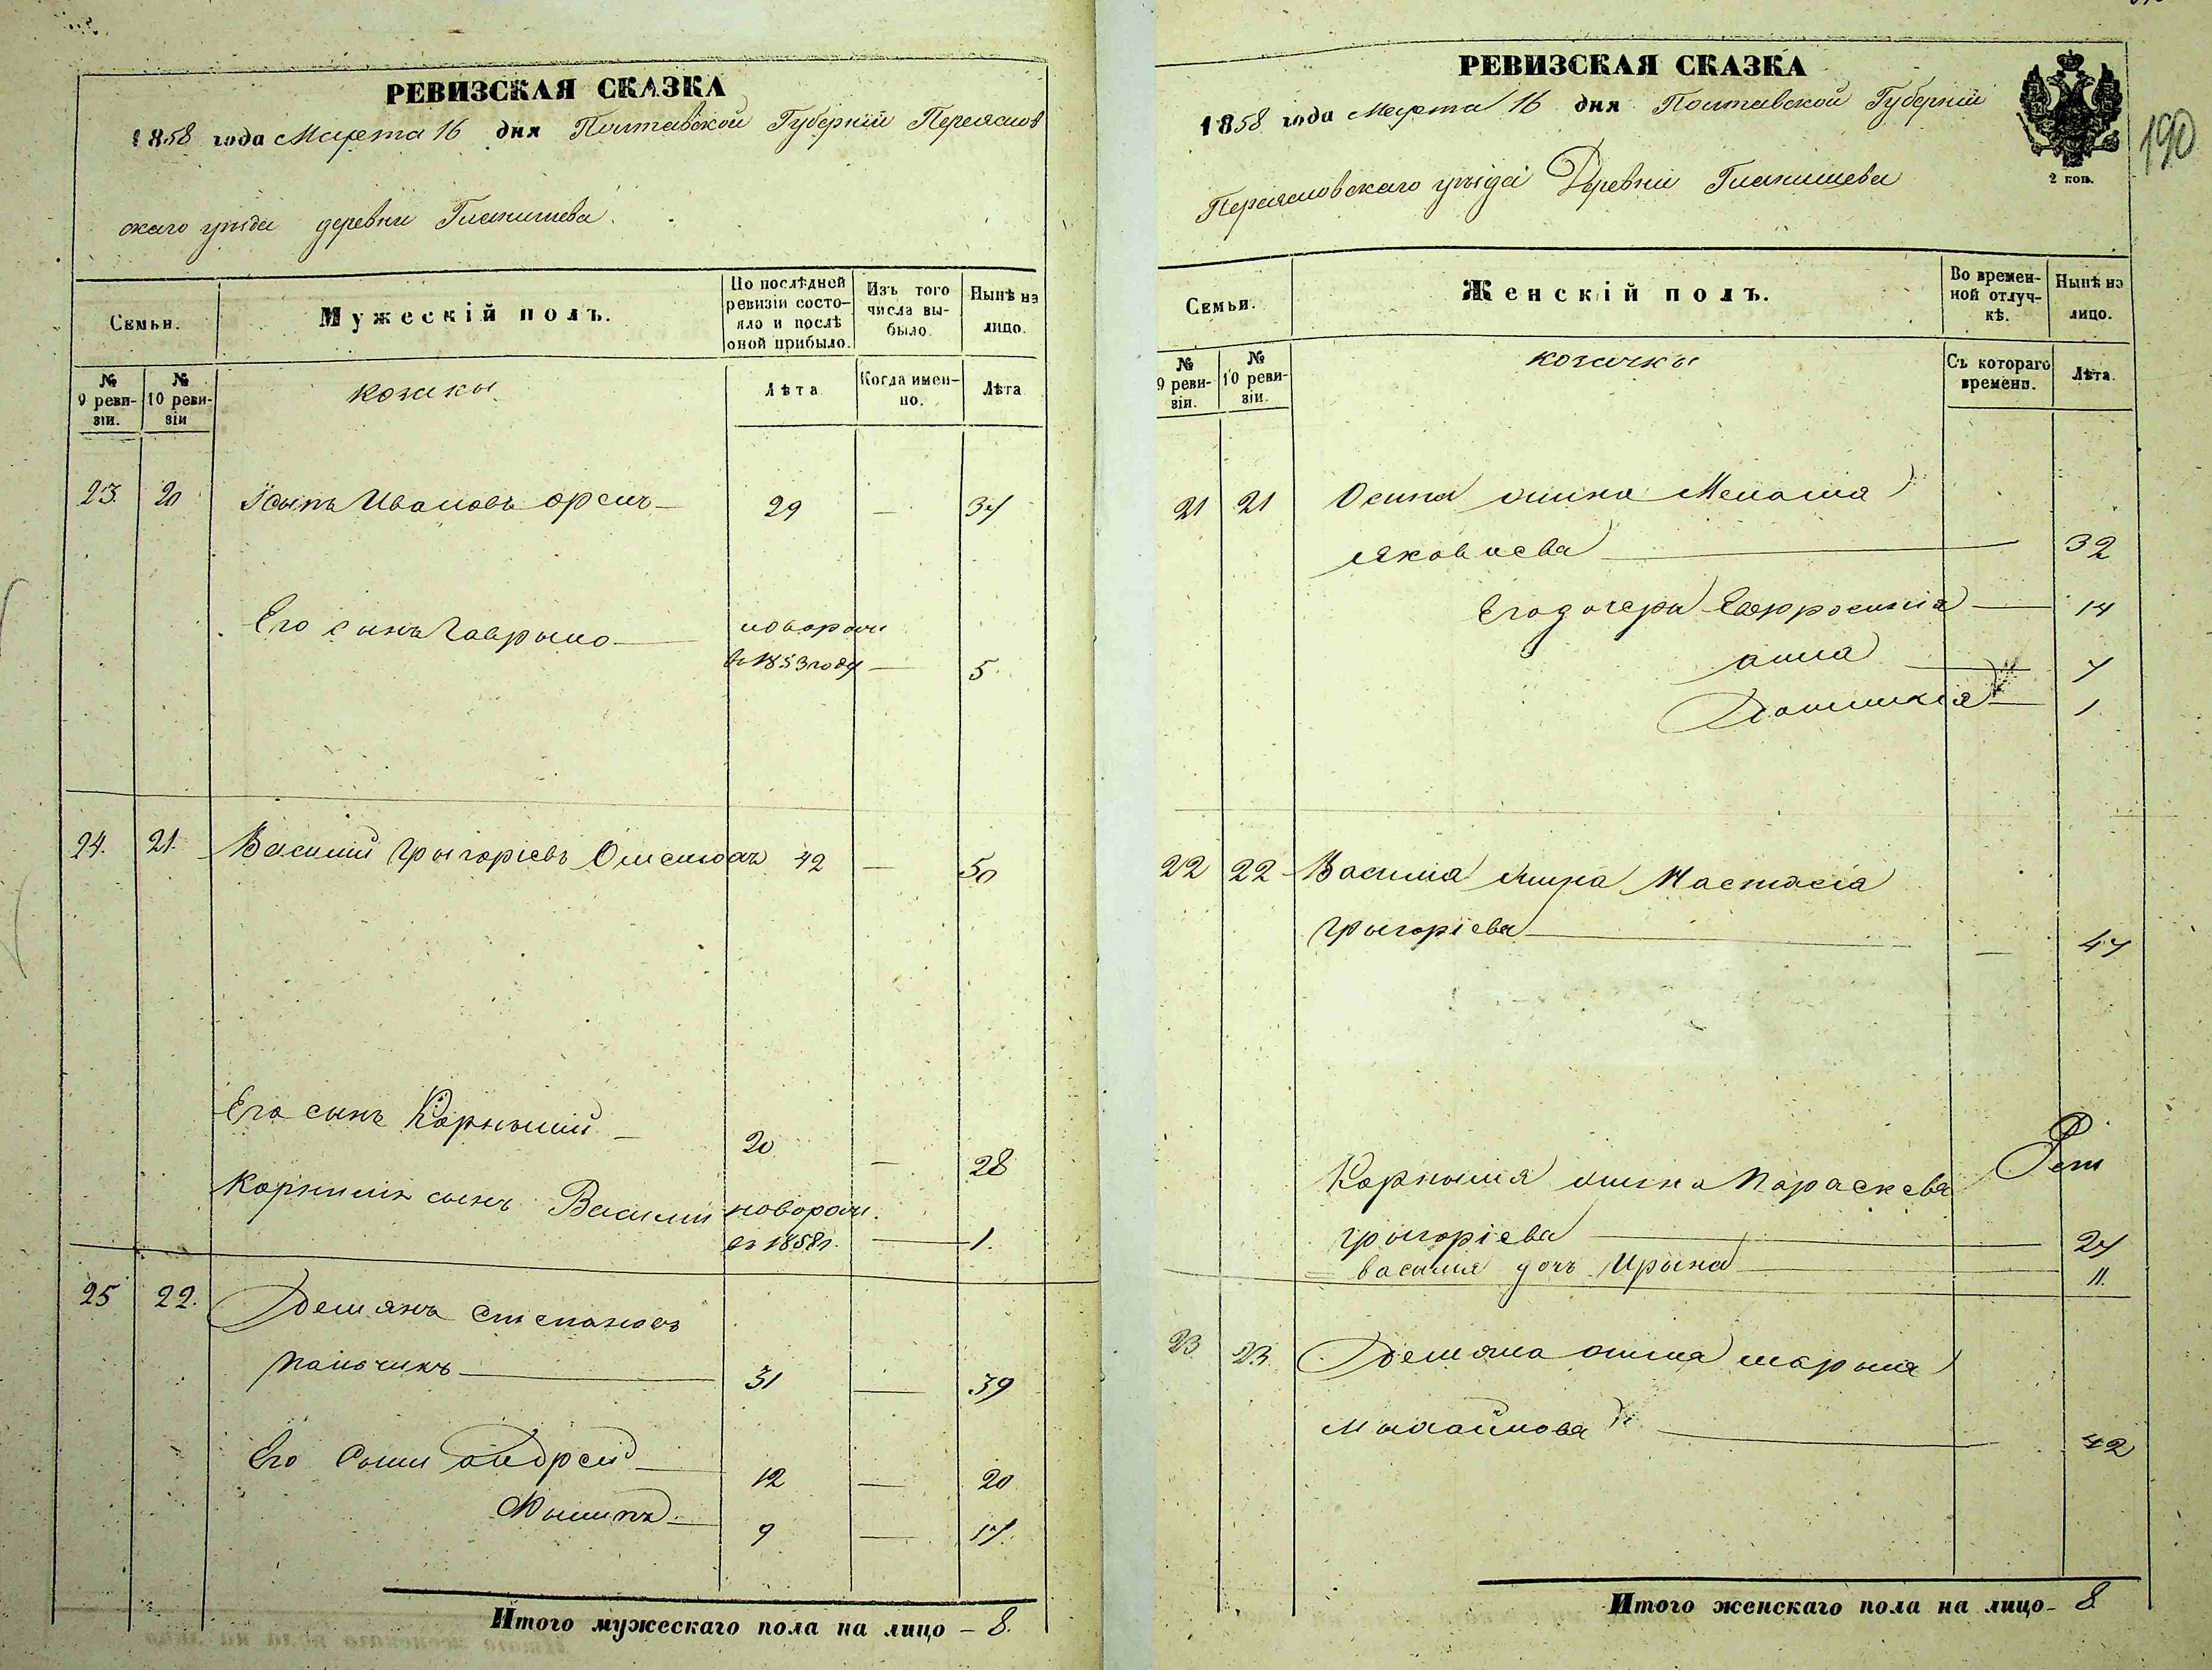 РЕВИЗСКАЯ СКАЗКА
1858 года Марта 16 дня Полтавской Губерніи Переяслов
скаго уѣзда деревни Гланишева
Семьи.
Мужескій полъ.
По послѣдней ревизіи состояло и послѣ оной прибыло.
Изъ того числа выбыло.
Нынѣ на лицо.
№ 9 ревизіи.
№ 10 ревизіи
козаки
Лѣта
Когда именно.
Лѣта
23. 20 Іосыпъ Ивановъ Орелъ 29 — 37
Его сынъ Гаврыло
новорож:
въ 1853 году — 5
24. 21. Василій Грыгоріевъ 42 — 50
Его сынъ Корнылій — 20 — 28
Корнилія сынъ Василій новорож.
въ 1858 г. — 1.
25 22. Демянъ Степановъ
Пальчикъ 31 — 39
Его Сыны Андрей 12 — 20
Фылипъ 9 — 17.
Итого мужескаго пола на лицо — 8.
РЕВИЗСКАЯ СКАЗКА
2 коп.
190
1858 года Марта 16 дня Полтавской Губерніи
Переясловскаго уѣзда Деревни Гланишева
Семьи.
Женскій полъ.
Во временной отлучкѣ.
Нынѣ на лицо.
№ 9 ревизіи.
№ 10 ревизіи.
козачкы
Съ котораго времени.
Лѣта.
21 21 Осипа жина Меланія
Яковлева — 32
Его дочеры Евфросинія — 14
Анна — 7
Домникія — 1.
22 22 Василія жина Настасія
Грыгоріева — 47
Корнылія жина Параскева
Грыгоріева — 27
Василія дочь Ирына — 11.
23. 23. Демяна жина Марыя
Мыхайлова — 42
Итого женскаго пола на лицо — 8.